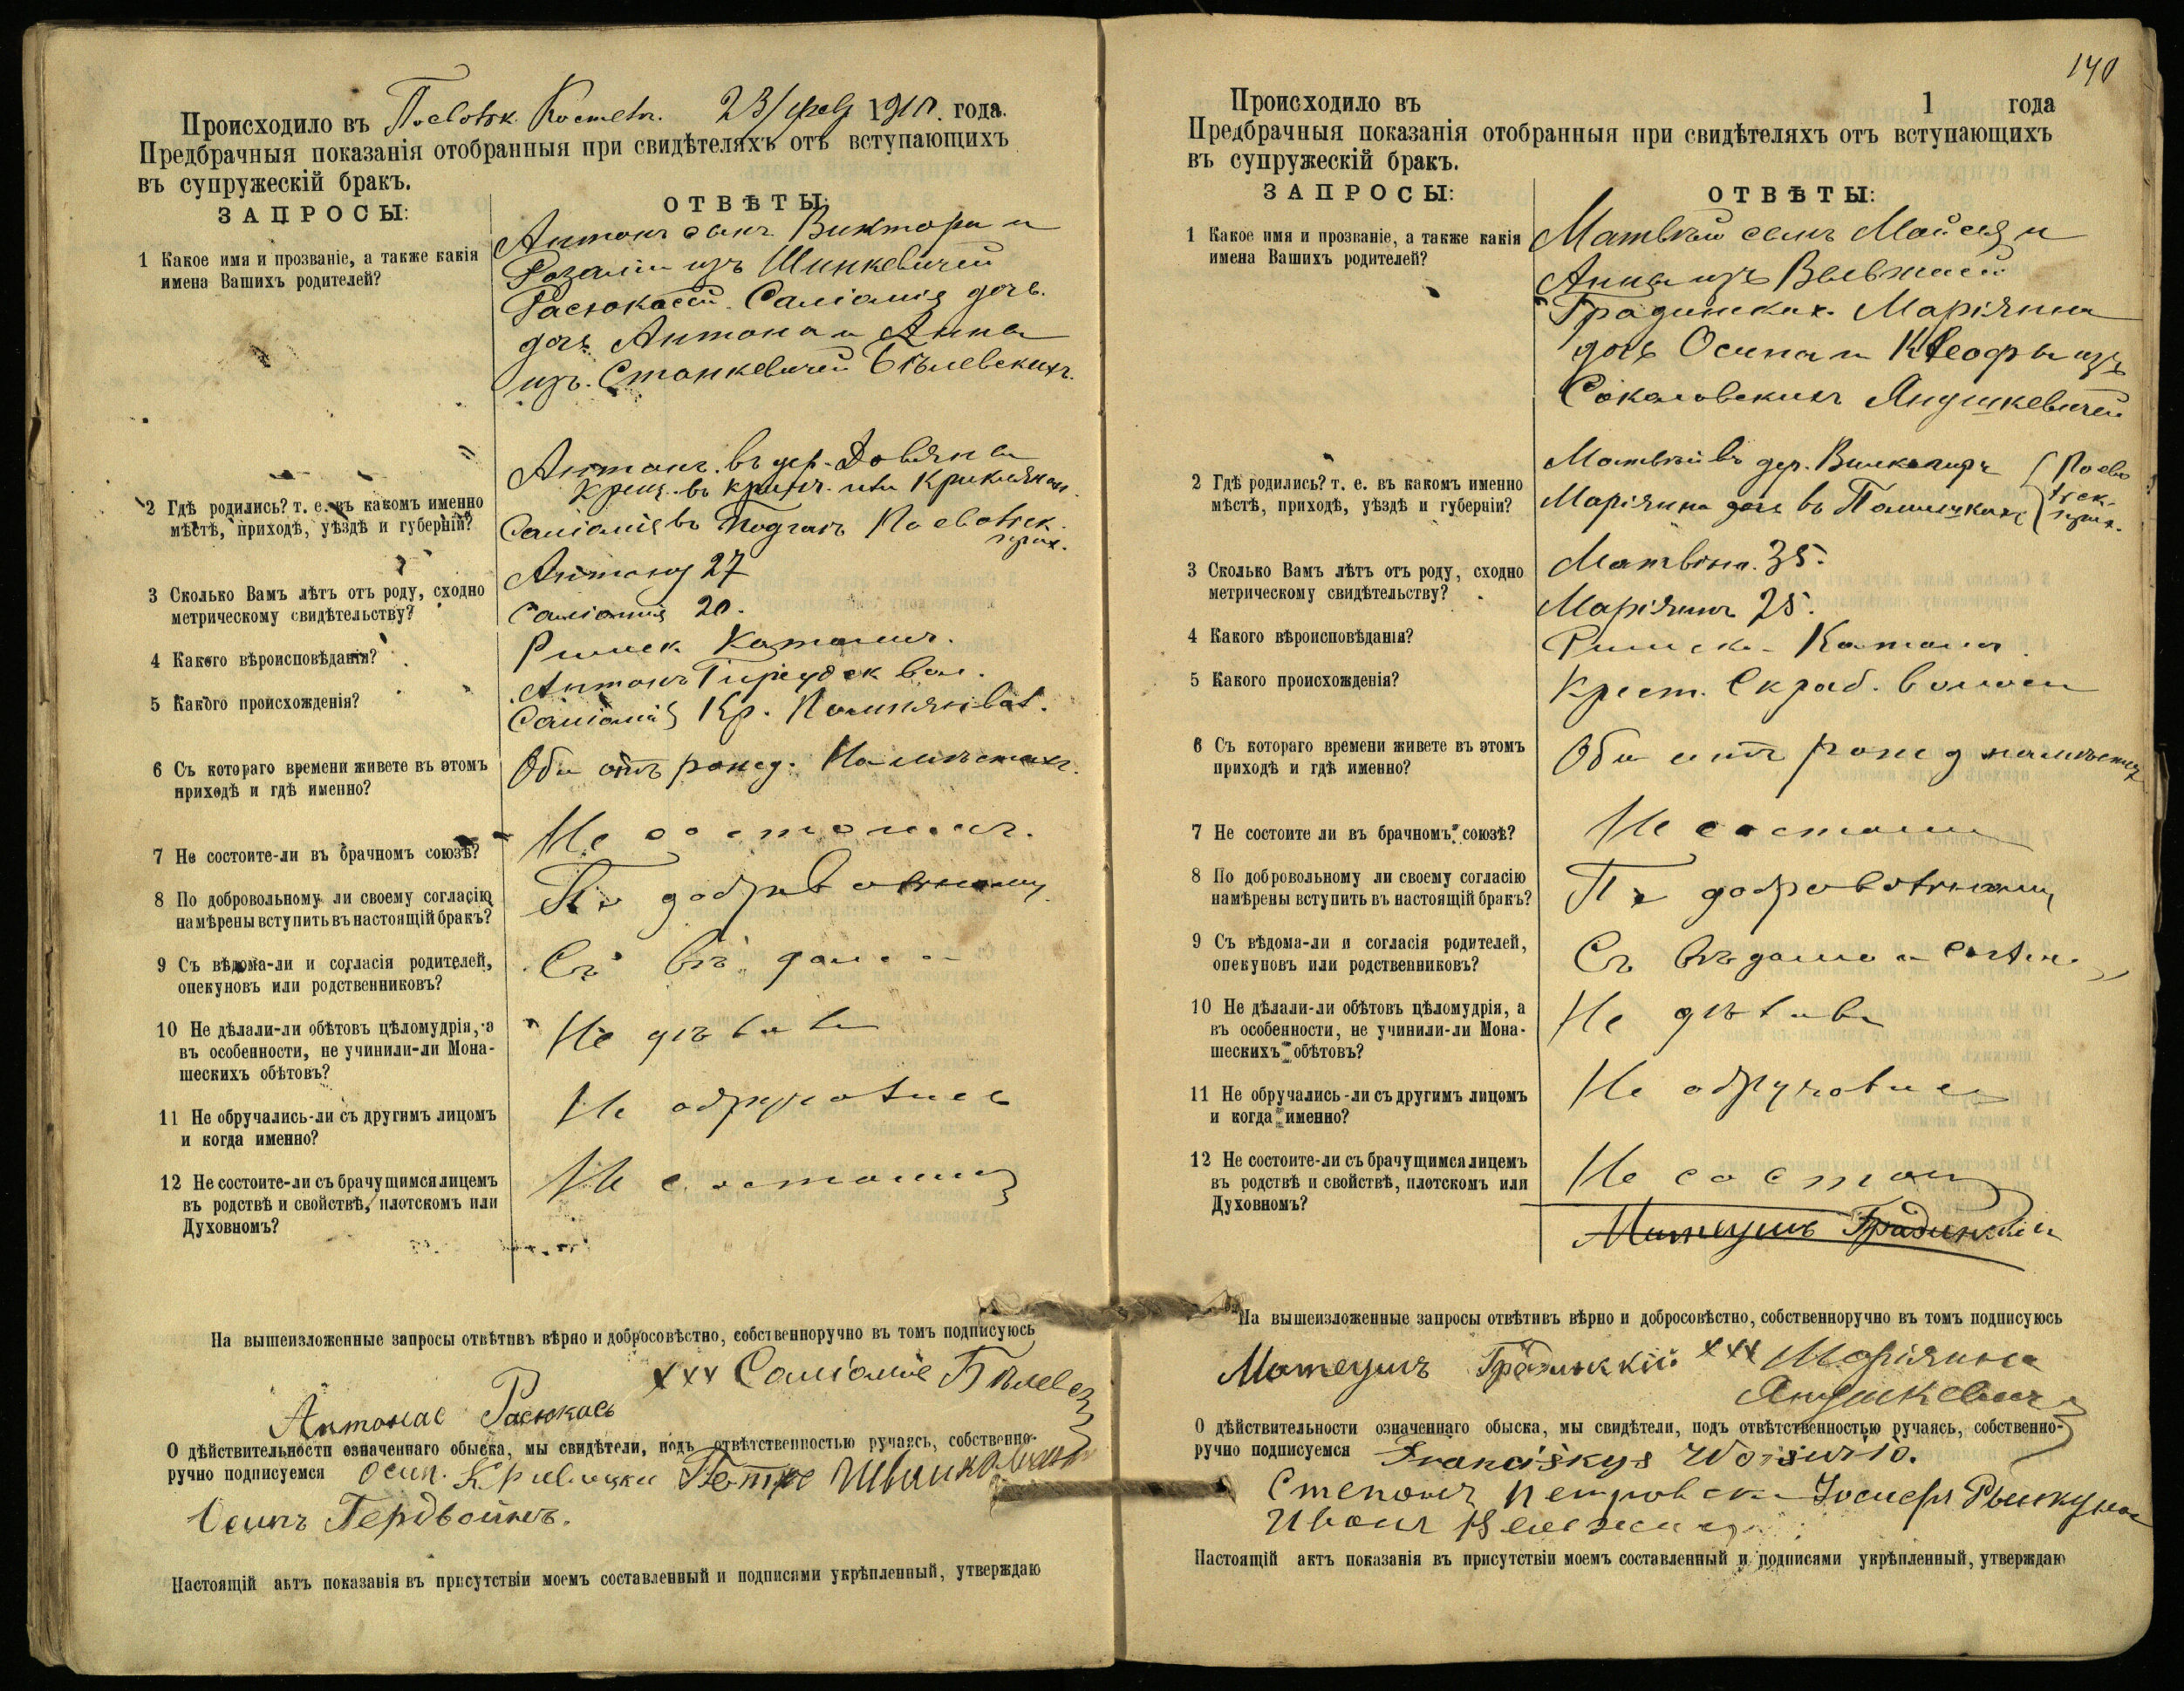 Происходило въ Поевольск. Костел. 23/февр 1910. года.
Предбрачныя показанія отобранныя при свидѣтеляхъ отъ вступающихъ
въ супружескій бракъ.
ЗАПРОСЫ:
ОТВѢТЫ:
1 Какое имя и прозваніе, а также какія
имена Вашихъ родителей?
Антонъ сынъ Виктора и
Розаліи изъ Шинкевичей
Расюкасей. Саліомія дочь.
дочь Антона и Анны
изъ. Станкевичей Бѣлевскихъ.
2 Гдѣ родились? т. е. въ какомъ именно
мѣстѣ, приходѣ, уѣздѣ и губерніи?
Антонъ. въ дер. Довяны
Саліомія въ
прих.
3 Сколько Вамъ лѣтъ отъ роду, сходно
метрическому свидѣтельству?
Антону 27
Саліомія 20.
4 Какого вѣроисповѣданія?
Римск Католич.
5 Какого происхожденія?
Антонъ вол.
Саліомія Кр.
6 Съ котораго времени живете въ этомъ
приходѣ и гдѣ именно?
Оби отъ рожд. На мѣстахъ.
7 Не состоите-ли въ брачномъ союзѣ?
Не состоимъ.
8 По добровольному ли своему согласію
намѣрены вступить въ настоящій бракъ?
По добровольному
9 Съ вѣдома-ли и согласія родителей,
опекуновъ или родственниковъ?
Съ вѣдома
10 Не дѣлали-ли обѣтовъ цѣломудрія, а
въ особенности, не учинили-ли Мона-
шескихъ обѣтовъ?
Не дѣлали
11 Не обручались-ли съ другимъ лицомъ
и когда именно?
Не обручались
12 Не состоите-ли съ брачущимся лицемъ
въ родствѣ и свойствѣ, плотскомъ или
Духовномъ?
Не состоимъ
На вышеизложенные запросы отвѣтивъ вѣрно и добросовѣстно, собственноручно въ томъ подписуюсь
xxx Саліомія Бѣлевск
Антонас Расюкась
О дѣйствительности означеннаго обыска, мы свидѣтели, подъ отвѣтственностью ручаясь, собственно-
ручно подписуемся Осип. Кривицки Петрос
Осипъ Гердвойнъ.
Настоящій актъ показанія въ присутствіи моемъ составленный и подписями укрѣпленный, утверждаю
140
Происходило въ 1 года
Предбрачныя показанія отобранныя при свидѣтеляхъ отъ вступающихъ
въ супружескій бракъ.
ЗАПРОСЫ:
ОТВѢТЫ:
1 Какое имя и прозваніе, а также какія
имена Вашихъ родителей?
Матвѣй сынъ Мойсея и
Анны изъ
Градинскихъ. Маріянна
дочь Осипа и Клеофы изъ
Соколовскихъ Янушкевичей
2 Гдѣ родились? т. е. въ какомъ именно
мѣстѣ, приходѣ, уѣздѣ и губерніи?
Матвѣй въ дер.
Маріянна дочь въ
прих.
3 Сколько Вамъ лѣтъ отъ роду, сходно
метрическому свидѣтельству?
Матвѣю. 35.
Маріянна 25.
4 Какого вѣроисповѣданія?
Римско-Католич.
5 Какого происхожденія?
Крест. Скраб. волости
6 Съ котораго времени живете въ этомъ
приходѣ и гдѣ именно?
Оби отъ рожд на мѣстахъ
7 Не состоите ли въ брачномъ союзѣ?
Не состоимъ
8 По добровольному ли своему согласію
намѣрены вступить въ настоящій бракъ?
По добровольному
9 Съ вѣдома-ли и согласія родителей,
опекуновъ или родственниковъ?
Съ вѣдома и соглас
10 Не дѣлали-ли обѣтовъ цѣломудрія, а
въ особенности, не учинили-ли Мона-
шескихъ обѣтовъ?
Не дѣлали
11 Не обручались-ли съ другимъ лицомъ
и когда именно?
Не обручались
12 Не состоите-ли съ брачущимся лицемъ
въ родствѣ и свойствѣ, плотскомъ или
Духовномъ?
Не состоимъ
Матеушъ Градинскій
На вышеизложенные запросы отвѣтивъ вѣрно и добросовѣстно, собственноручно въ томъ подписуюсь
Матеушъ Градинскій xxx Маріянна
Янушкевичъ
О дѣйствительности означеннаго обыска, мы свидѣтели, подъ отвѣтственностью ручаясь, собственно-
ручно подписуемся Franciškys
Степонъ Петровски Іосифъ
Ивонъ
Настоящій актъ показанія въ присутствіи моемъ составленный и подписями укрѣпленный, утверждаю